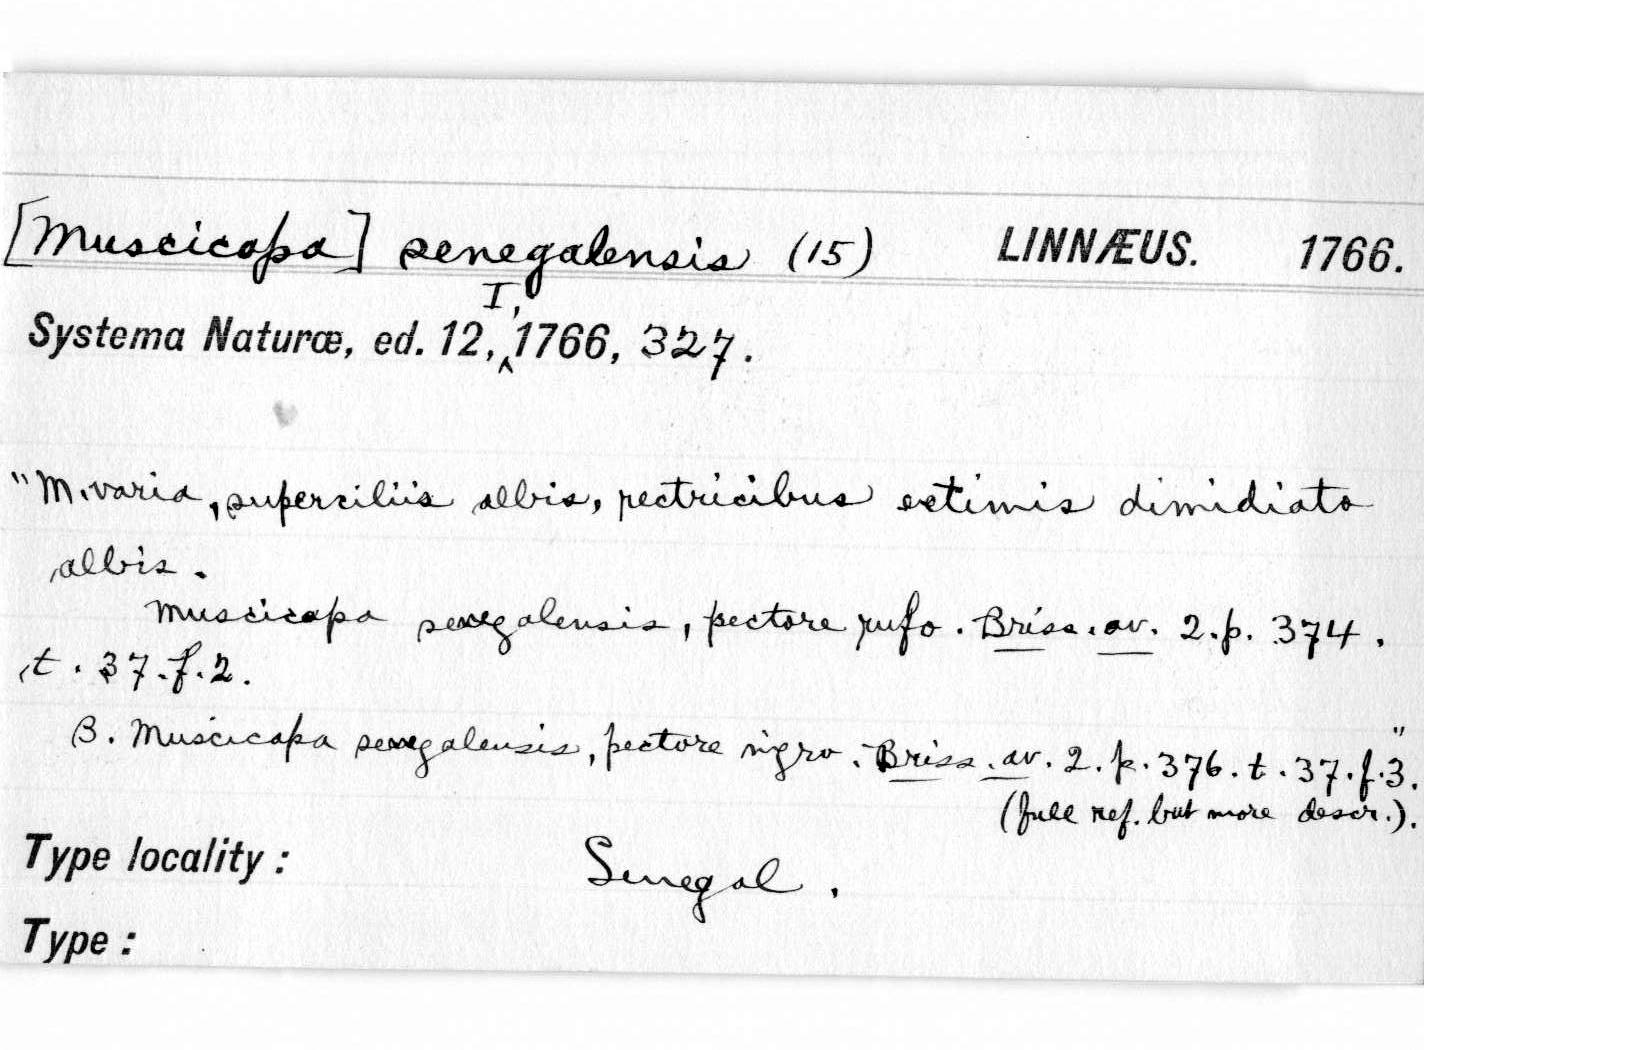 [Muscicapa] senegalensis (15) LINNÆUS. 1766.
I,
Systema Naturæ, ed. 12, ^ 1766, 327.
"M. varia, superciliis albis, rectricibus extimis dimidiato
albis.
Muscicapa senegalensis, pectore rufo. Briss. av. 2. p. 374.
t. 37. f. 2.
B. Muscicapa senegalensis, pectore nigro. Briss. av. 2. p. 376. t. 37. f. 3."
(full ref. but more descr.).
Type locality: Senegal.
Type: